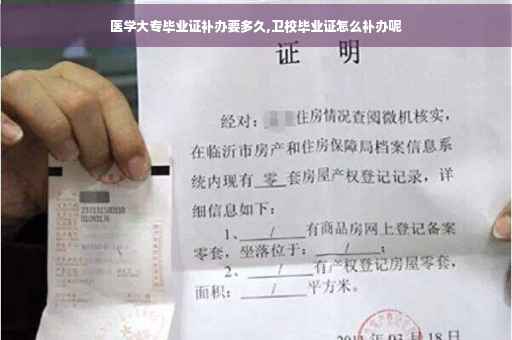 医学大专毕业证补办要多久,卫校毕业证怎么补办呢
证 明
经对：住房情况查阅微机核实，
在临沂市房产和住房保障局档案信息系
统内现有 零 套房屋产权登记记录，详
细信息如下：
1、 / 有商品房网上登记备案
零套，坐落位于： / ；
2、 / 有产权登记房屋零套，
面积： / 平方米。
03月18日